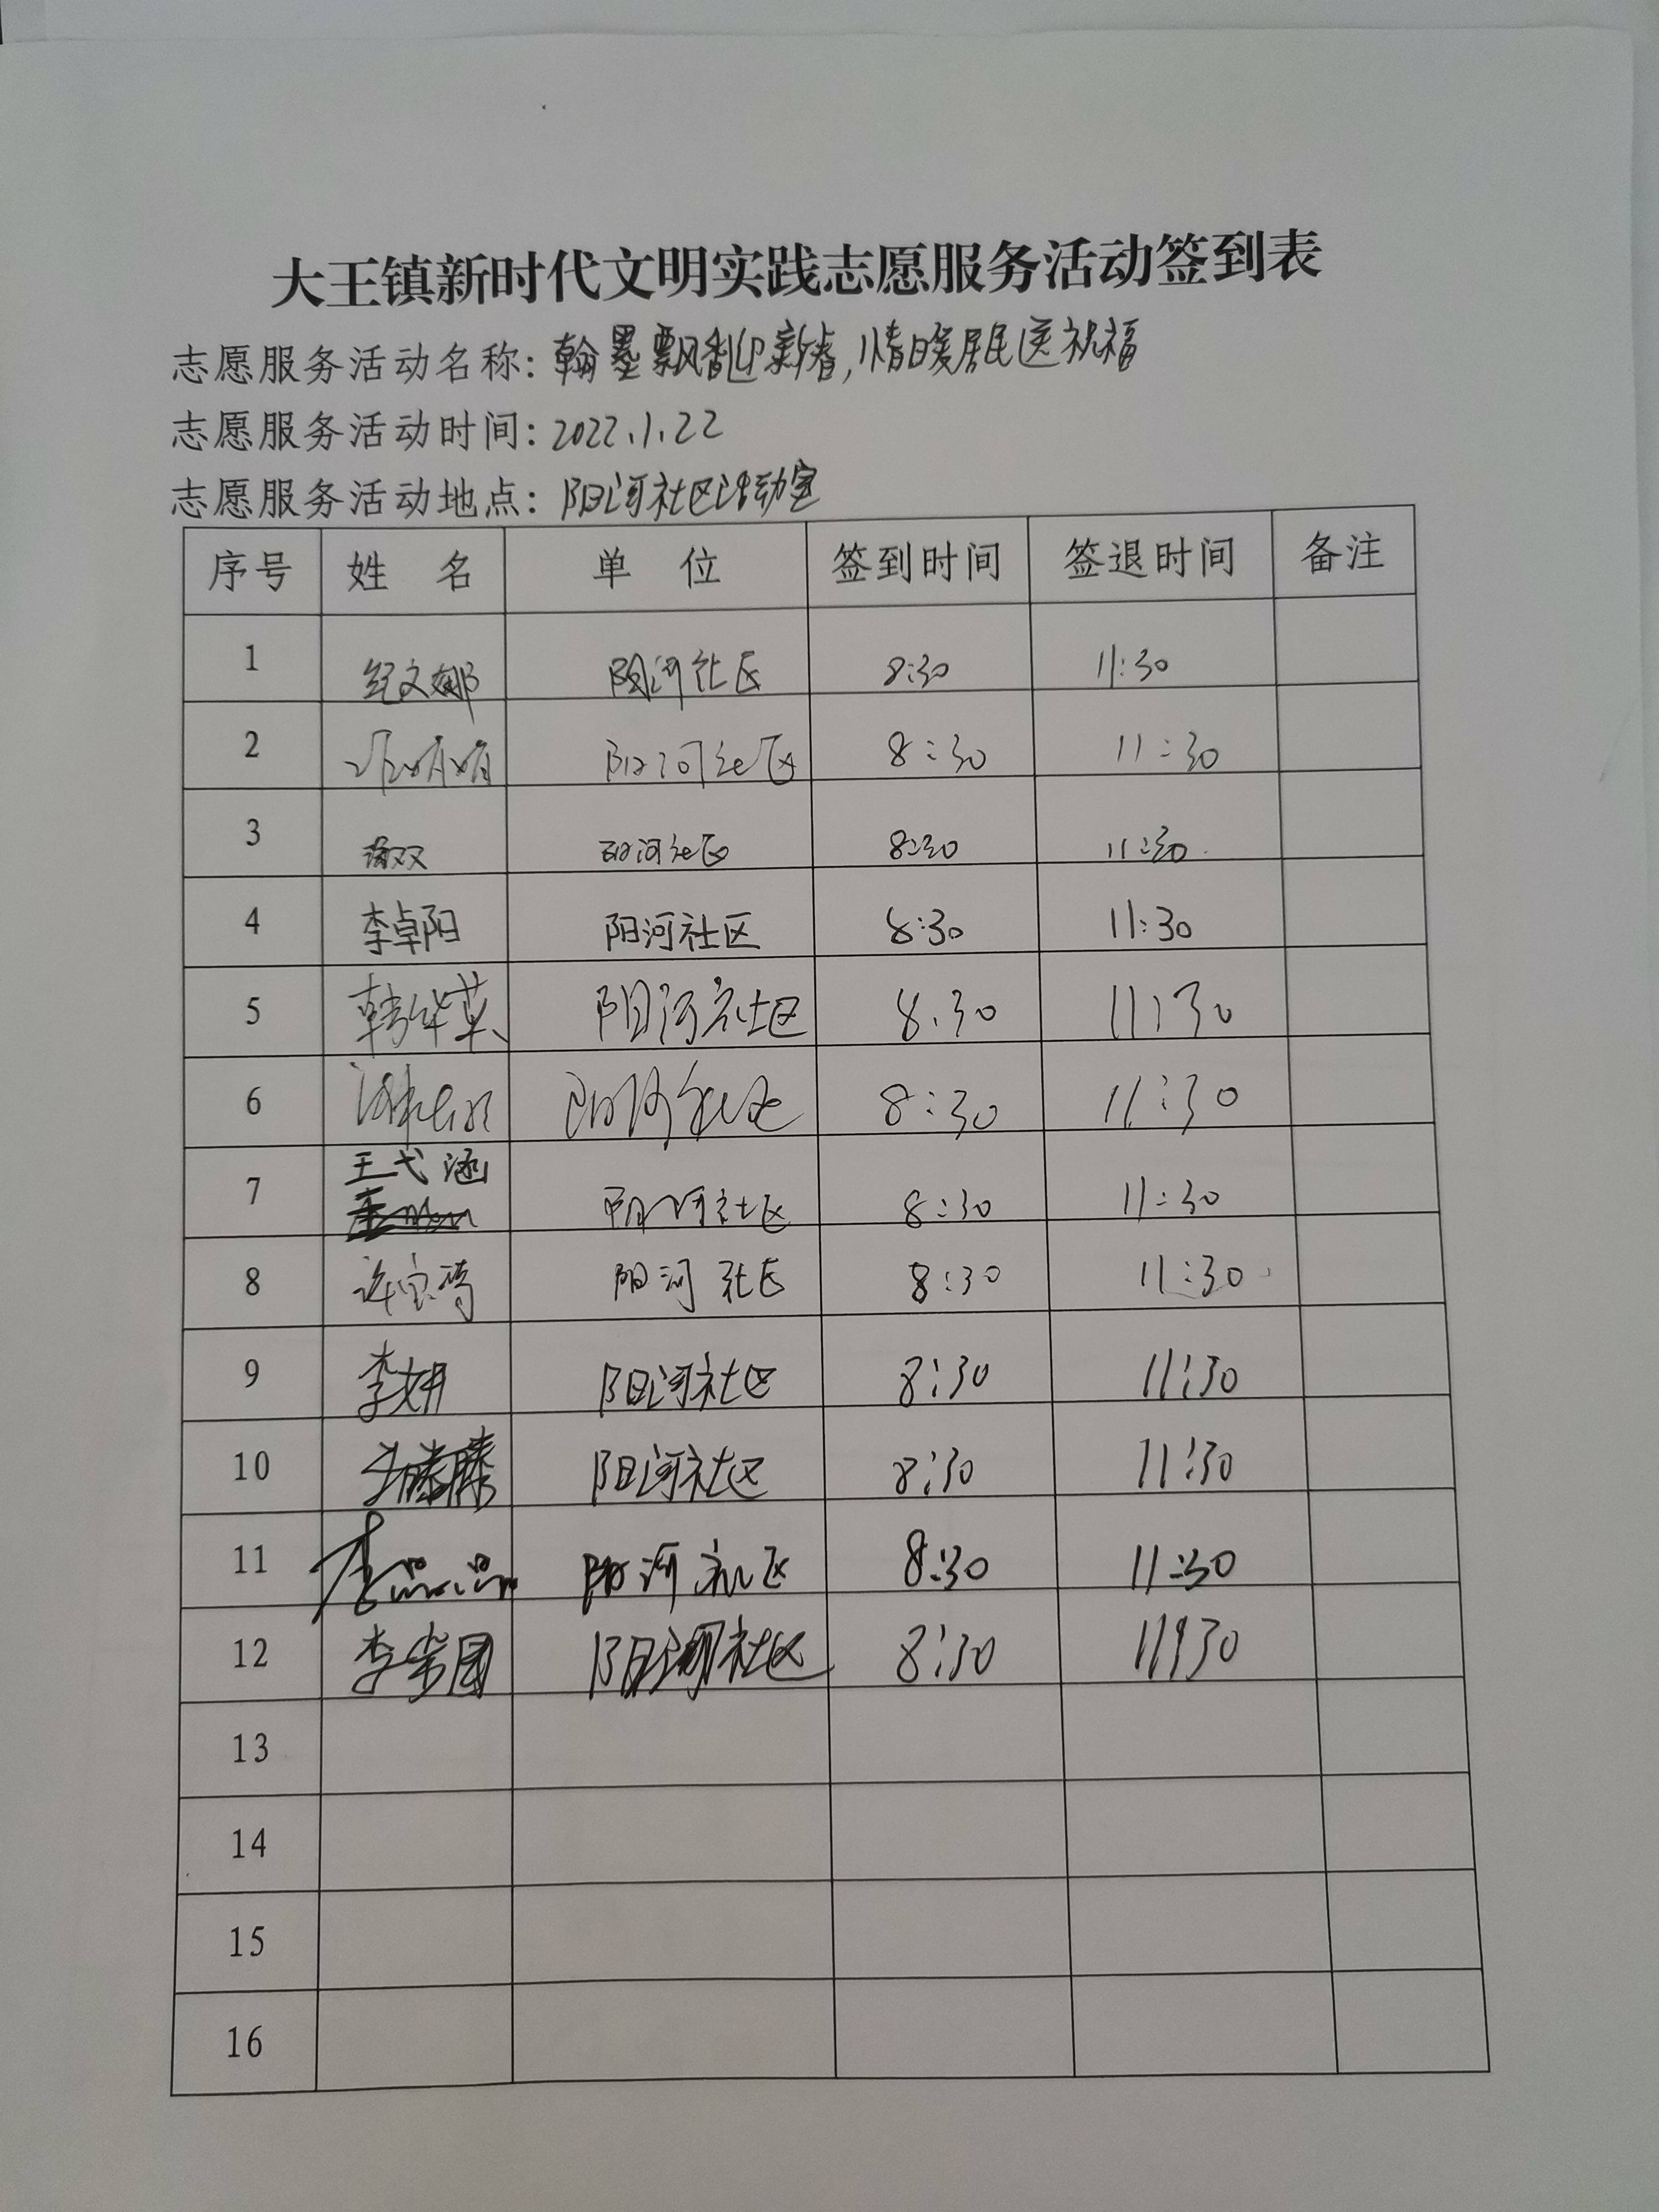 大王镇新时代文明实践志愿服务活动签到表
志愿服务活动名称：翰墨飘香迎新春，情暖居民送祝福
志愿服务活动时间：2022.1.22
志愿服务活动地点：阳河社区活动室
序号 姓 名 单 位 签到时间 签退时间 备注
1 纪文娜 阳河社区 8:30 11:30
2 阳河社区 8:30 11:30
3 阳河社区 8:30 11:30
4 李卓阳 阳河社区 8:30 11:30
5 韩华英 阳河社区 8:30 11:30
6 阳河社区 8:30 11:30
7 王弋涵 阳河社区 8:30 11:30
8 许宝琦 阳河社区 8:30 11:30
9 李妍 阳河社区 8:30 11:30
10 王滕滕 阳河社区 8:30 11:30
11 李 阳河社区 8:30 11:30
12 李 阳河社区 8:30 11:30
13
14
15
16